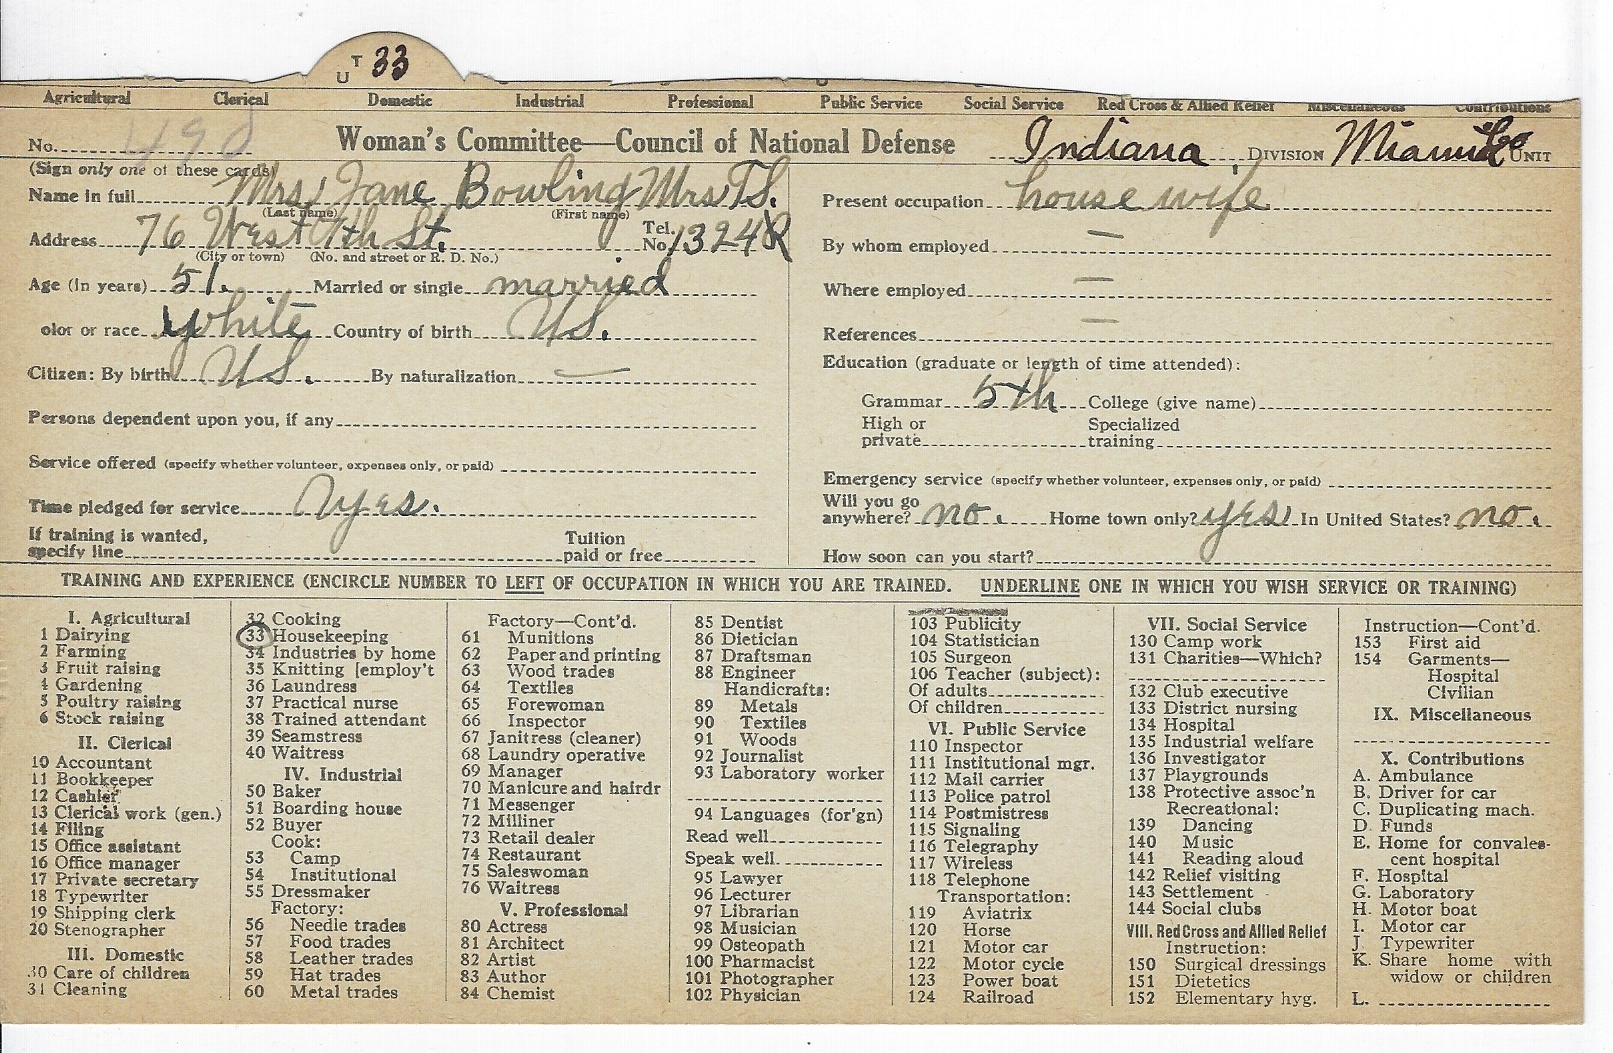 U T 33
Agricultural Clerical Domestic Industrial Professional Public Service Social Service Red Cross & Allied Relief Miscellaneous Contributions
No. 498 Woman's Committee—Council of National Defense Indiana DIVISION Miami Co UNIT
(Sign only one of these cards)
Name in full Mrs Jane Bowling Mrs T.S.
(Last name) (First name)
Address 76 West 9th St. Tel. No. 1324R
(City or town) (No. and street or R. D. No.)
Age (in years) 51. Married or single married
olor or race white Country of birth U.S.
Citizen: By birth U.S. By naturalization —
Persons dependent upon you, if any
Service offered (specify whether volunteer, expenses only, or paid)
Time pledged for service yes.
If training is wanted,
specify line Tuition paid or free
Present occupation house wife
By whom employed —
Where employed —
References —
Education (graduate or length of time attended):
Grammar 5th College (give name)
High or private Specialized training
Emergency service (specify whether volunteer, expenses only, or paid)
Will you go
anywhere? no. Home town only? yes In United States? no.
How soon can you start?
TRAINING AND EXPERIENCE (ENCIRCLE NUMBER TO LEFT OF OCCUPATION IN WHICH YOU ARE TRAINED. UNDERLINE ONE IN WHICH YOU WISH SERVICE OR TRAINING)
I. Agricultural
1 Dairying
2 Farming
3 Fruit raising
4 Gardening
5 Poultry raising
6 Stock raising
II. Clerical
10 Accountant
11 Bookkeeper
12 Cashier
13 Clerical work (gen.)
14 Filing
15 Office assistant
16 Office manager
17 Private secretary
18 Typewriter
19 Shipping clerk
20 Stenographer
III. Domestic
30 Care of children
31 Cleaning
32 Cooking
33 Housekeeping
34 Industries by home
35 Knitting [employ't
36 Laundress
37 Practical nurse
38 Trained attendant
39 Seamstress
40 Waitress
IV. Industrial
50 Baker
51 Boarding house
52 Buyer
Cook:
53 Camp
54 Institutional
55 Dressmaker
Factory:
56 Needle trades
57 Food trades
58 Leather trades
59 Hat trades
60 Metal trades
Factory—Cont'd.
61 Munitions
62 Paper and printing
63 Wood trades
64 Textiles
65 Forewoman
66 Inspector
67 Janitress (cleaner)
68 Laundry operative
69 Manager
70 Manicure and hairdr
71 Messenger
72 Milliner
73 Retail dealer
74 Restaurant
75 Saleswoman
76 Waitress
V. Professional
80 Actress
81 Architect
82 Artist
83 Author
84 Chemist
85 Dentist
86 Dietician
87 Draftsman
88 Engineer
Handicrafts:
89 Metals
90 Textiles
91 Woods
92 Journalist
93 Laboratory worker
94 Languages (for'gn)
Read well
Speak well
95 Lawyer
96 Lecturer
97 Librarian
98 Musician
99 Osteopath
100 Pharmacist
101 Photographer
102 Physician
103 Publicity
104 Statistician
105 Surgeon
106 Teacher (subject):
Of adults
Of children
VI. Public Service
110 Inspector
111 Institutional mgr.
112 Mail carrier
113 Police patrol
114 Postmistress
115 Signaling
116 Telegraphy
117 Wireless
118 Telephone
Transportation:
119 Aviatrix
120 Horse
121 Motor car
122 Motor cycle
123 Power boat
124 Railroad
VII. Social Service
130 Camp work
131 Charities—Which?
132 Club executive
133 District nursing
134 Hospital
135 Industrial welfare
136 Investigator
137 Playgrounds
138 Protective assoc'n
Recreational:
139 Dancing
140 Music
141 Reading aloud
142 Relief visiting
143 Settlement
144 Social clubs
VIII. Red Cross and Allied Relief
Instruction:
150 Surgical dressings
151 Dietetics
152 Elementary hyg.
Instruction—Cont'd.
153 First aid
154 Garments—
Hospital
Civilian
IX. Miscellaneous
X. Contributions
A. Ambulance
B. Driver for car
C. Duplicating mach.
D. Funds
E. Home for convales-
cent hospital
F. Hospital
G. Laboratory
H. Motor boat
I. Motor car
J. Typewriter
K. Share home with
widow or children
L.